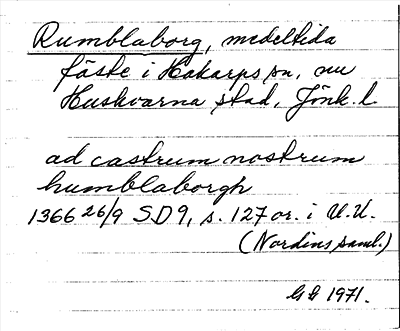 Rumblaborg, medeltida
fäste i Hakarps sn, nu
Huskvarna stad, Jönk. l.
ad castrum nostrum
humblaborgh
1366 26/9 SD9, s. 127 or. i U.U.
(Nordins saml.)
GG 1971.